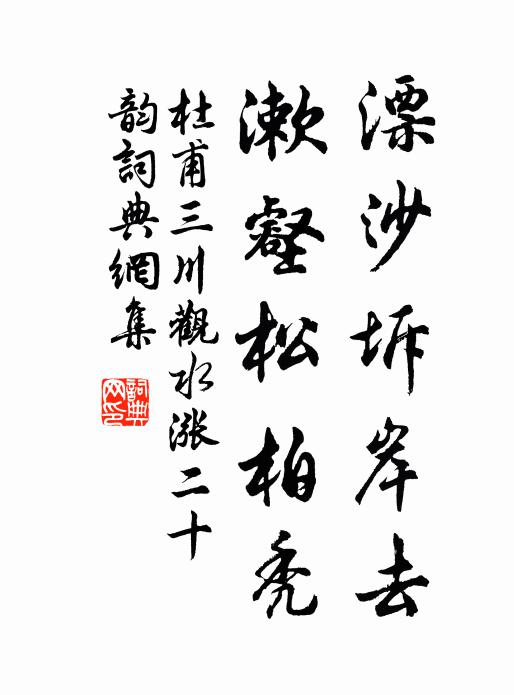 漂沙坼岸去
漱壑松柏禿
杜甫三川觀水漲二十
韵詞典網集
詞典
网印